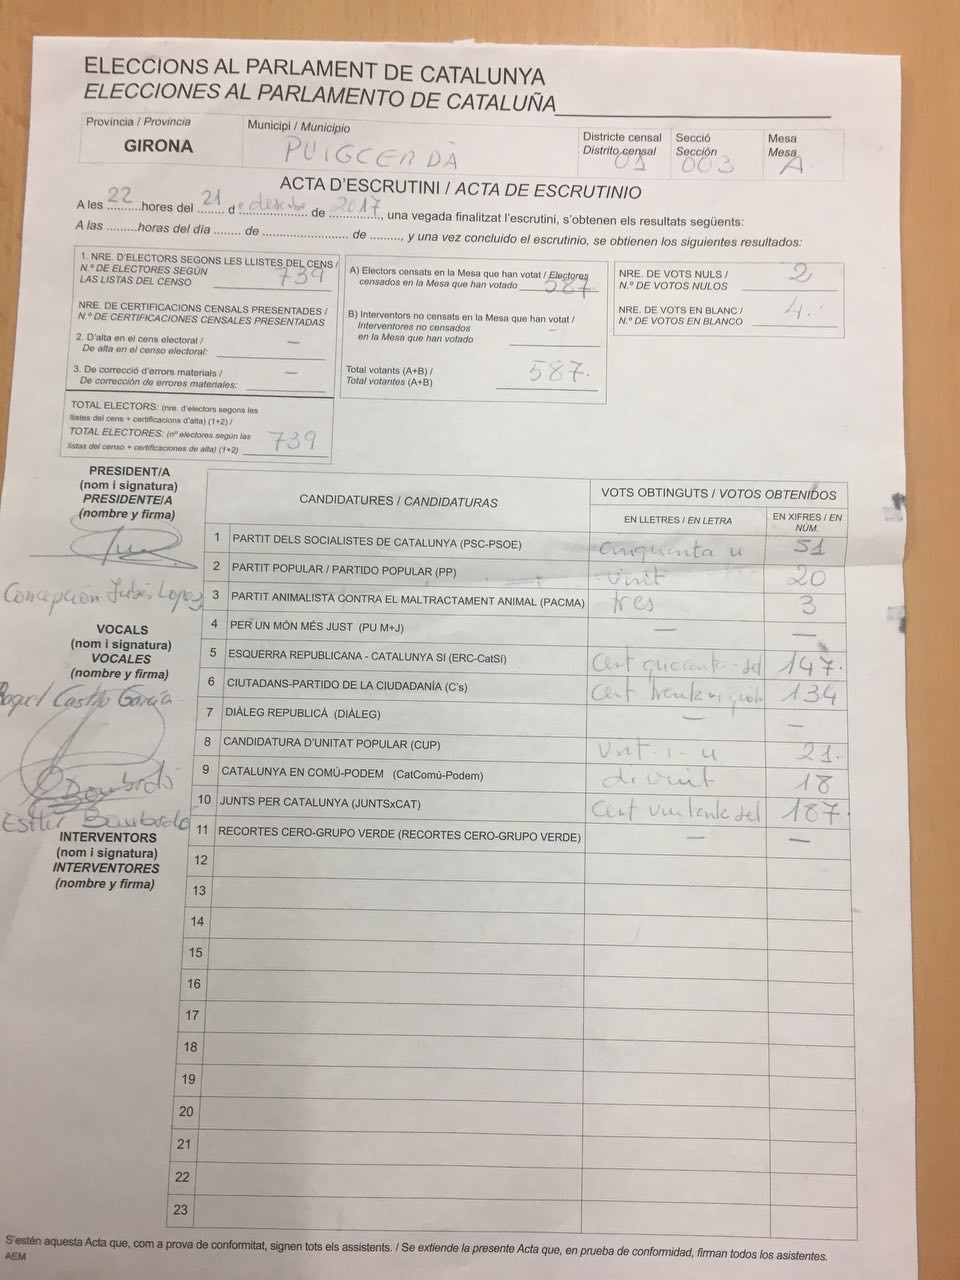 ELECCIONS AL PARLAMENT DE CATALUNYA
ELECCIONES AL PARLAMENTO DE CATALUÑA
Provincia / Provincia
GIRONA
Municipi / Municipio
PUIGCERDÀ
Districte censal
Distrito censal
01
Secció
Sección
003
Mesa
Mesa
A.
ACTA D'ESCRUTINI / ACTA DE ESCRUTINIO
A les 22 hores del 21 de desembre de 2017, una vegada finalitzat l'escrutini, s'obtenen els resultats següents:
A las ......... horas del día ........ de .......................... de ........., y una vez concluido el escrutinio, se obtienen los siguientes resultados:
1. NRE. D'ELECTORS SEGONS LES LLISTES DEL CENS /
N.º DE ELECTORES SEGÚN
LAS LISTAS DEL CENSO 739
NRE. DE CERTIFICACIONS CENSALS PRESENTADES /
N.º DE CERTIFICACIONES CENSALES PRESENTADAS
2. D'alta en el cens electoral / —
De alta en el censo electoral:
3. De correcció d'errors materials / —
De corrección de errores materiales:
TOTAL ELECTORS: (nre. d'electors segons les
llistes del cens + certificacions d'alta) (1+2) /
TOTAL ELECTORES: (nº electores según las
listas del censo + certificaciones de alta) (1+2) 739
A) Electors censats en la Mesa que han votat / Electores
censados en la Mesa que han votado 587.
B) Interventors no censats en la Mesa que han votat /
Interventores no censados —
en la Mesa que han votado
Total votants (A+B) /
Total votantes (A+B) 587.
NRE. DE VOTS NULS /
N.º DE VOTOS NULOS 2
NRE. DE VOTS EN BLANC /
N.º DE VOTOS EN BLANCO 4.
PRESIDENT/A
(nom i signatura)
PRESIDENTE/A
(nombre y firma)
Concepción López
VOCALS
(nom i signatura)
VOCALES
(nombre y firma)
Raquel Castro García.
Bombardó
Esther Bombardó
INTERVENTORS
(nom i signatura)
INTERVENTORES
(nombre y firma)
CANDIDATURES / CANDIDATURAS
VOTS OBTINGUTS / VOTOS OBTENIDOS
EN LLETRES / EN LETRA
EN XIFRES / EN
NÚM.
1 PARTIT DELS SOCIALISTES DE CATALUNYA (PSC-PSOE) cinquanta u 51
2 PARTIT POPULAR / PARTIDO POPULAR (PP) 20
3 PARTIT ANIMALISTA CONTRA EL MALTRACTAMENT ANIMAL (PACMA) tres 3
4 PER UN MÓN MÉS JUST (PU M+J) — —
5 ESQUERRA REPUBLICANA - CATALUNYA SI (ERC-CatSí) Cent 147.
6 CIUTADANS-PARTIDO DE LA CIUDADANÍA (C's) Cent 134
7 DIÀLEG REPUBLICÀ (DIÀLEG) — —
8 CANDIDATURA D'UNITAT POPULAR (CUP) Vint-i-u 21.
9 CATALUNYA EN COMÚ-PODEM (CatComú-Podem) 18
10 JUNTS PER CATALUNYA (JUNTSxCAT) Cent 187.
11 RECORTES CERO-GRUPO VERDE (RECORTES CERO-GRUPO VERDE) — —
12
13
14
15
16
17
18
19
20
21
22
23
S'estén aquesta Acta que, com a prova de conformitat, signen tots els assistents. / Se extiende la presente Acta que, en prueba de conformidad, firman todos los asistentes.
AEM